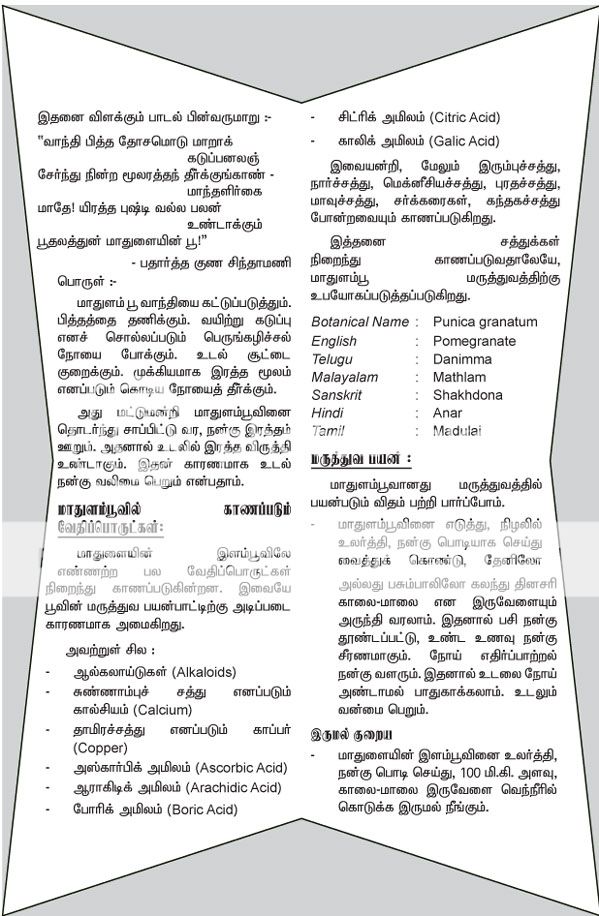 இதனை விளக்கும் பாடல் பின்வருமாறு :-
"வாந்தி பித்த தோசமொடு மாறாக்
கடுப்பனலஞ்
சேர்ந்து நின்ற மூலரத்தந் தீர்க்குங்காண் -
மாந்தளிர்கை
மாதே! யிரத்த புஷ்டி வல்ல பலன்
உண்டாக்கும்
பூதலத்துன் மாதுளையின் பூ!"
- பதார்த்த குண சிந்தாமணி
பொருள் :-
மாதுளம் பூ வாந்தியை கட்டுப்படுத்தும்.
பித்தத்தை தணிக்கும். வயிற்று கடுப்பு
எனச் சொல்லப்படும் பெருங்கழிச்சல்
நோயை போக்கும். உடல் சூட்டை
குறைக்கும். முக்கியமாக இரத்த மூலம்
எனப்படும் கொடிய நோயைத் தீர்க்கும்.
அது மட்டுமன்றி மாதுளம்பூவினை
தொடர்ந்து சாப்பிட்டு வர, நன்கு இரத்தம்
ஊறும். அதனால் உடலில் இரத்த விருத்தி
உண்டாகும். இதன் காரணமாக உடல்
நன்கு வலிமை பெறும் என்பதாம்.
மாதுளம்பூவில் காணப்படும்
வேதிப்பொருட்கள்:
மாதுளையின் இளம்பூவிலே
எண்ணற்ற பல வேதிப்பொருட்கள்
நிறைந்து காணப்படுகின்றன. இவையே
பூவின் மருத்துவ பயன்பாட்டிற்கு அடிப்படை
காரணமாக அமைகிறது.
அவற்றுள் சில :
- ஆல்கலாய்டுகள் (Alkaloids)
- சுண்ணாம்புச் சத்து எனப்படும்
கால்சியம் (Calcium)
- தாமிரச்சத்து எனப்படும் காப்பர்
(Copper)
- அஸ்கார்பிக் அமிலம் (Ascorbic Acid)
- ஆராகிடிக் அமிலம் (Arachidic Acid)
- போரிக் அமிலம் (Boric Acid)
- சிட்ரிக் அமிலம் (Citric Acid)
- காலிக் அமிலம் (Galic Acid)
இவையன்றி, மேலும் இரும்புச்சத்து,
நார்ச்சத்து, மெக்னீசியச்சத்து, புரதச்சத்து,
மாவுச்சத்து, சர்க்கரைகள், கந்தகச்சத்து
போன்றவையும் காணப்படுகிறது.
இத்தனை சத்துக்கள்
நிறைந்து காணப்படுவதாலேயே,
மாதுளம்பூ மருத்துவத்திற்கு
உபயோகப்படுத்தப்படுகிறது.
Botanical Name : Punica granatum
English : Pomegranate
Telugu : Danimma
Malayalam : Mathlam
Sanskrit : Shakhdona
Hindi : Anar
Tamil : Madulai
மருத்துவ பயன் :
மாதுளம்பூவானது மருத்துவத்தில்
பயன்படும் விதம் பற்றி பார்ப்போம்.
- மாதுளம்பூவினை எடுத்து, நிழலில்
உலர்த்தி, நன்கு பொடியாக செய்து
வைத்துக் கொண்டு, தேனிலோ
அல்லது பசும்பாலிலோ கலந்து தினசரி
காலை-மாலை என இருவேளையும்
அருந்தி வரலாம். இதனால் பசி நன்கு
தூண்டப்பட்டு, உண்ட உணவு நன்கு
சீரணமாகும். நோய் எதிர்ப்பாற்றல்
நன்கு வளரும். இதனால் உடலை நோய்
அண்டாமல் பாதுகாக்கலாம். உடலும்
வன்மை பெறும்.
இருமல் குறைய
- மாதுளையின் இளம்பூவினை உலர்த்தி,
நன்கு பொடி செய்து, 100 மி.கி. அளவு,
காலை-மாலை இருவேளை வெந்நீரில்
கொடுக்க இருமல் நீங்கும்.